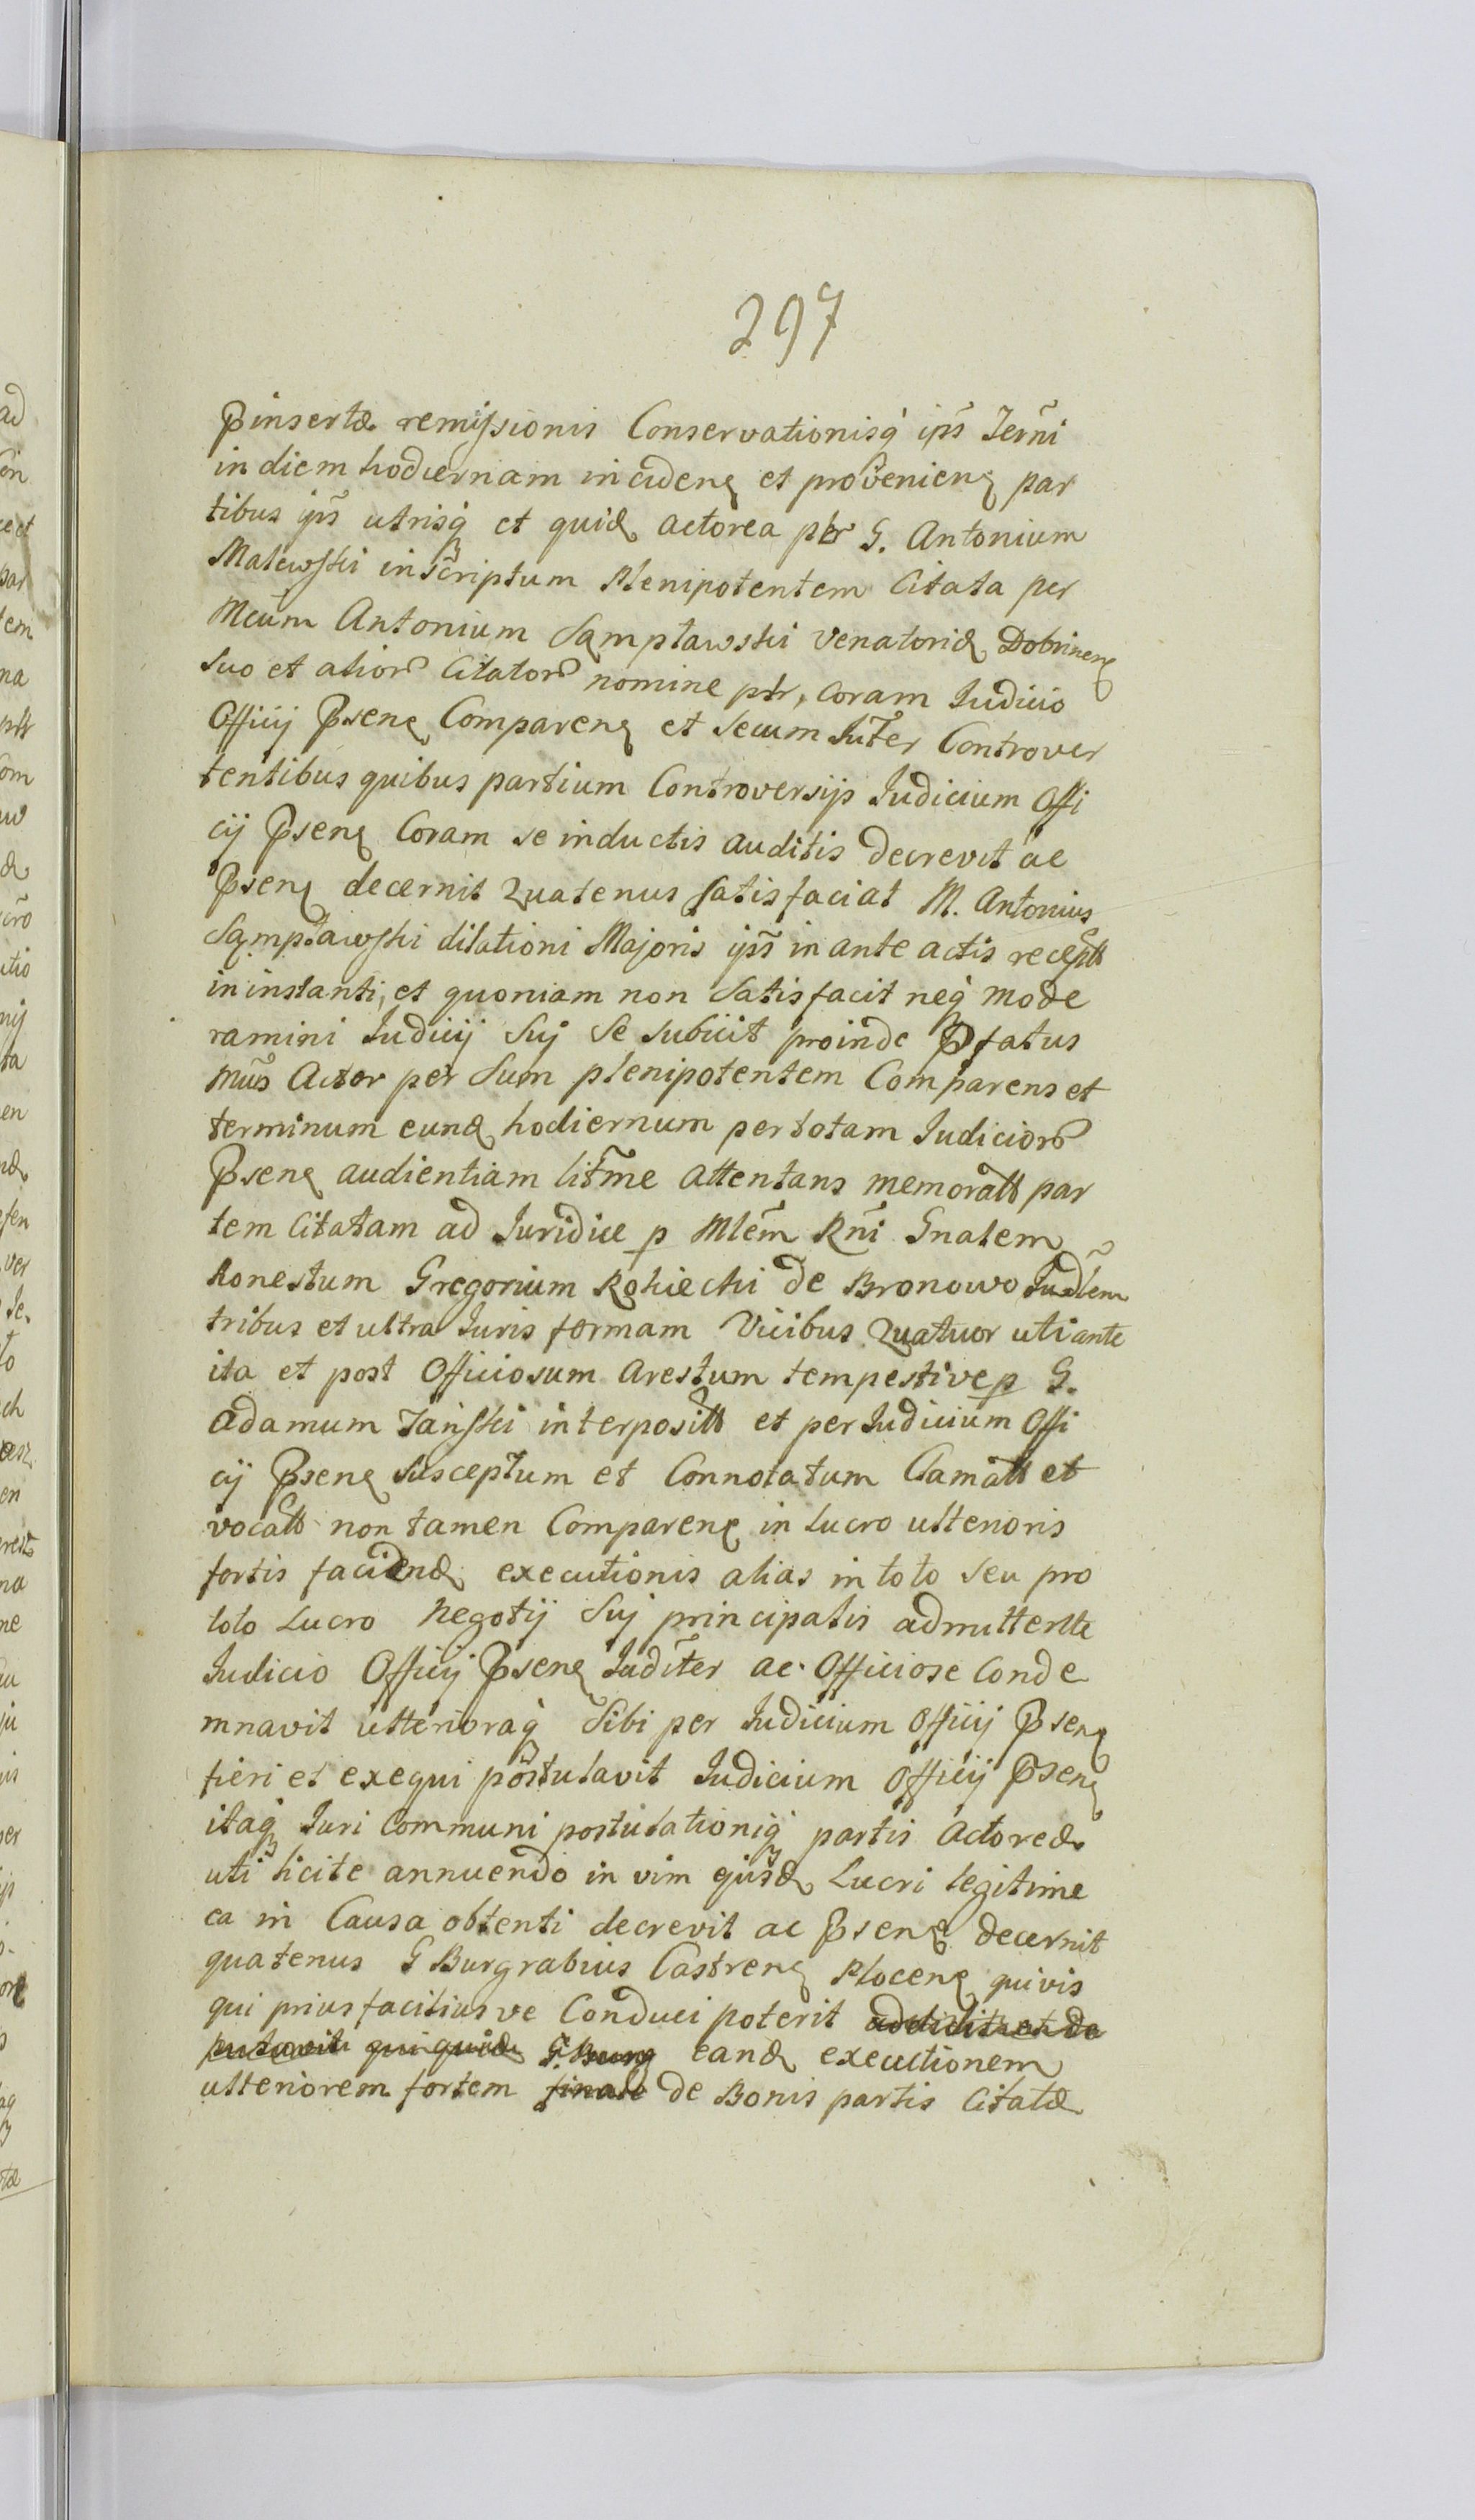 297
Pinsertæ remissionis Conservationisq ips Termi
in diem hodiernam incidenę et provenienę par
tibus ips utrisq et quid actorea ptr G. Antonium
Malewski inscriptum Plenipotentem Citata per
Mcum Antonium Sąmpławski Venatorid Dobrinenę
Suo et alior Citator nomine ptr, coram Iudicio
Officij Psenę Comparenę et Secum Iuter Controver
tentibus quibus partium Controversijs Iudicium Offi
cij Psenę Coram se inductis auditis decrevit ac
Psenę decernit Quatenus satisfaciat M. Antonius
Sąmpławski dilationi Majoris ips in ante actis receptt
in instanti, et quoniam non Satisfacit neq mode
ramini Iudicij Suj Se Subiicit proinde Pfatus
Mus Actor per Sum plenipotentem Comparens et
terminum eund hodiernum per totam Iudicior
Psenę audientiam litme attentans memoratt par
tem Citatam ad Iuridice p Mlem Rni Gnalem
honestum Gregorium Rokiecki de Bronowo Iudlem
tribus et ultra Iuris formam Vicibus Quatuor uti ante
ita et post Officiosum Arestum tempestive p G.
Adamum Janski interpositt et per Iudicium Offi
cij Psenę Susceptum et Connotatum Clamatt et
vocatt non tamen Comparenę in Lucro ulterioris
fortis faciend executionis alias in toto seu pro
toto Lucro Negotij Suj principalis admittente
Iudicio Officij Psenę Iudter ac Officiose Conde
mnavit ulterioraq Sibi per Iudicium Officij Psenę
fieri et exequi postulavit Iudicium Officij Psenę
itaq Iuri Communi postulationiq partis Actoreæ
uti licite annuendo in vim ejusd Lucri legitime
ea in Causa obtenti decrevit ac Psenę decernit
quatenus G Burgrabius Castrenę Plocenę quivis
qui prius facilius ve Conduci poterit addidit et de
putavit qui quid G. Burg eand executionem
ulteriorem fortem finale de Bonis partis Citatæ